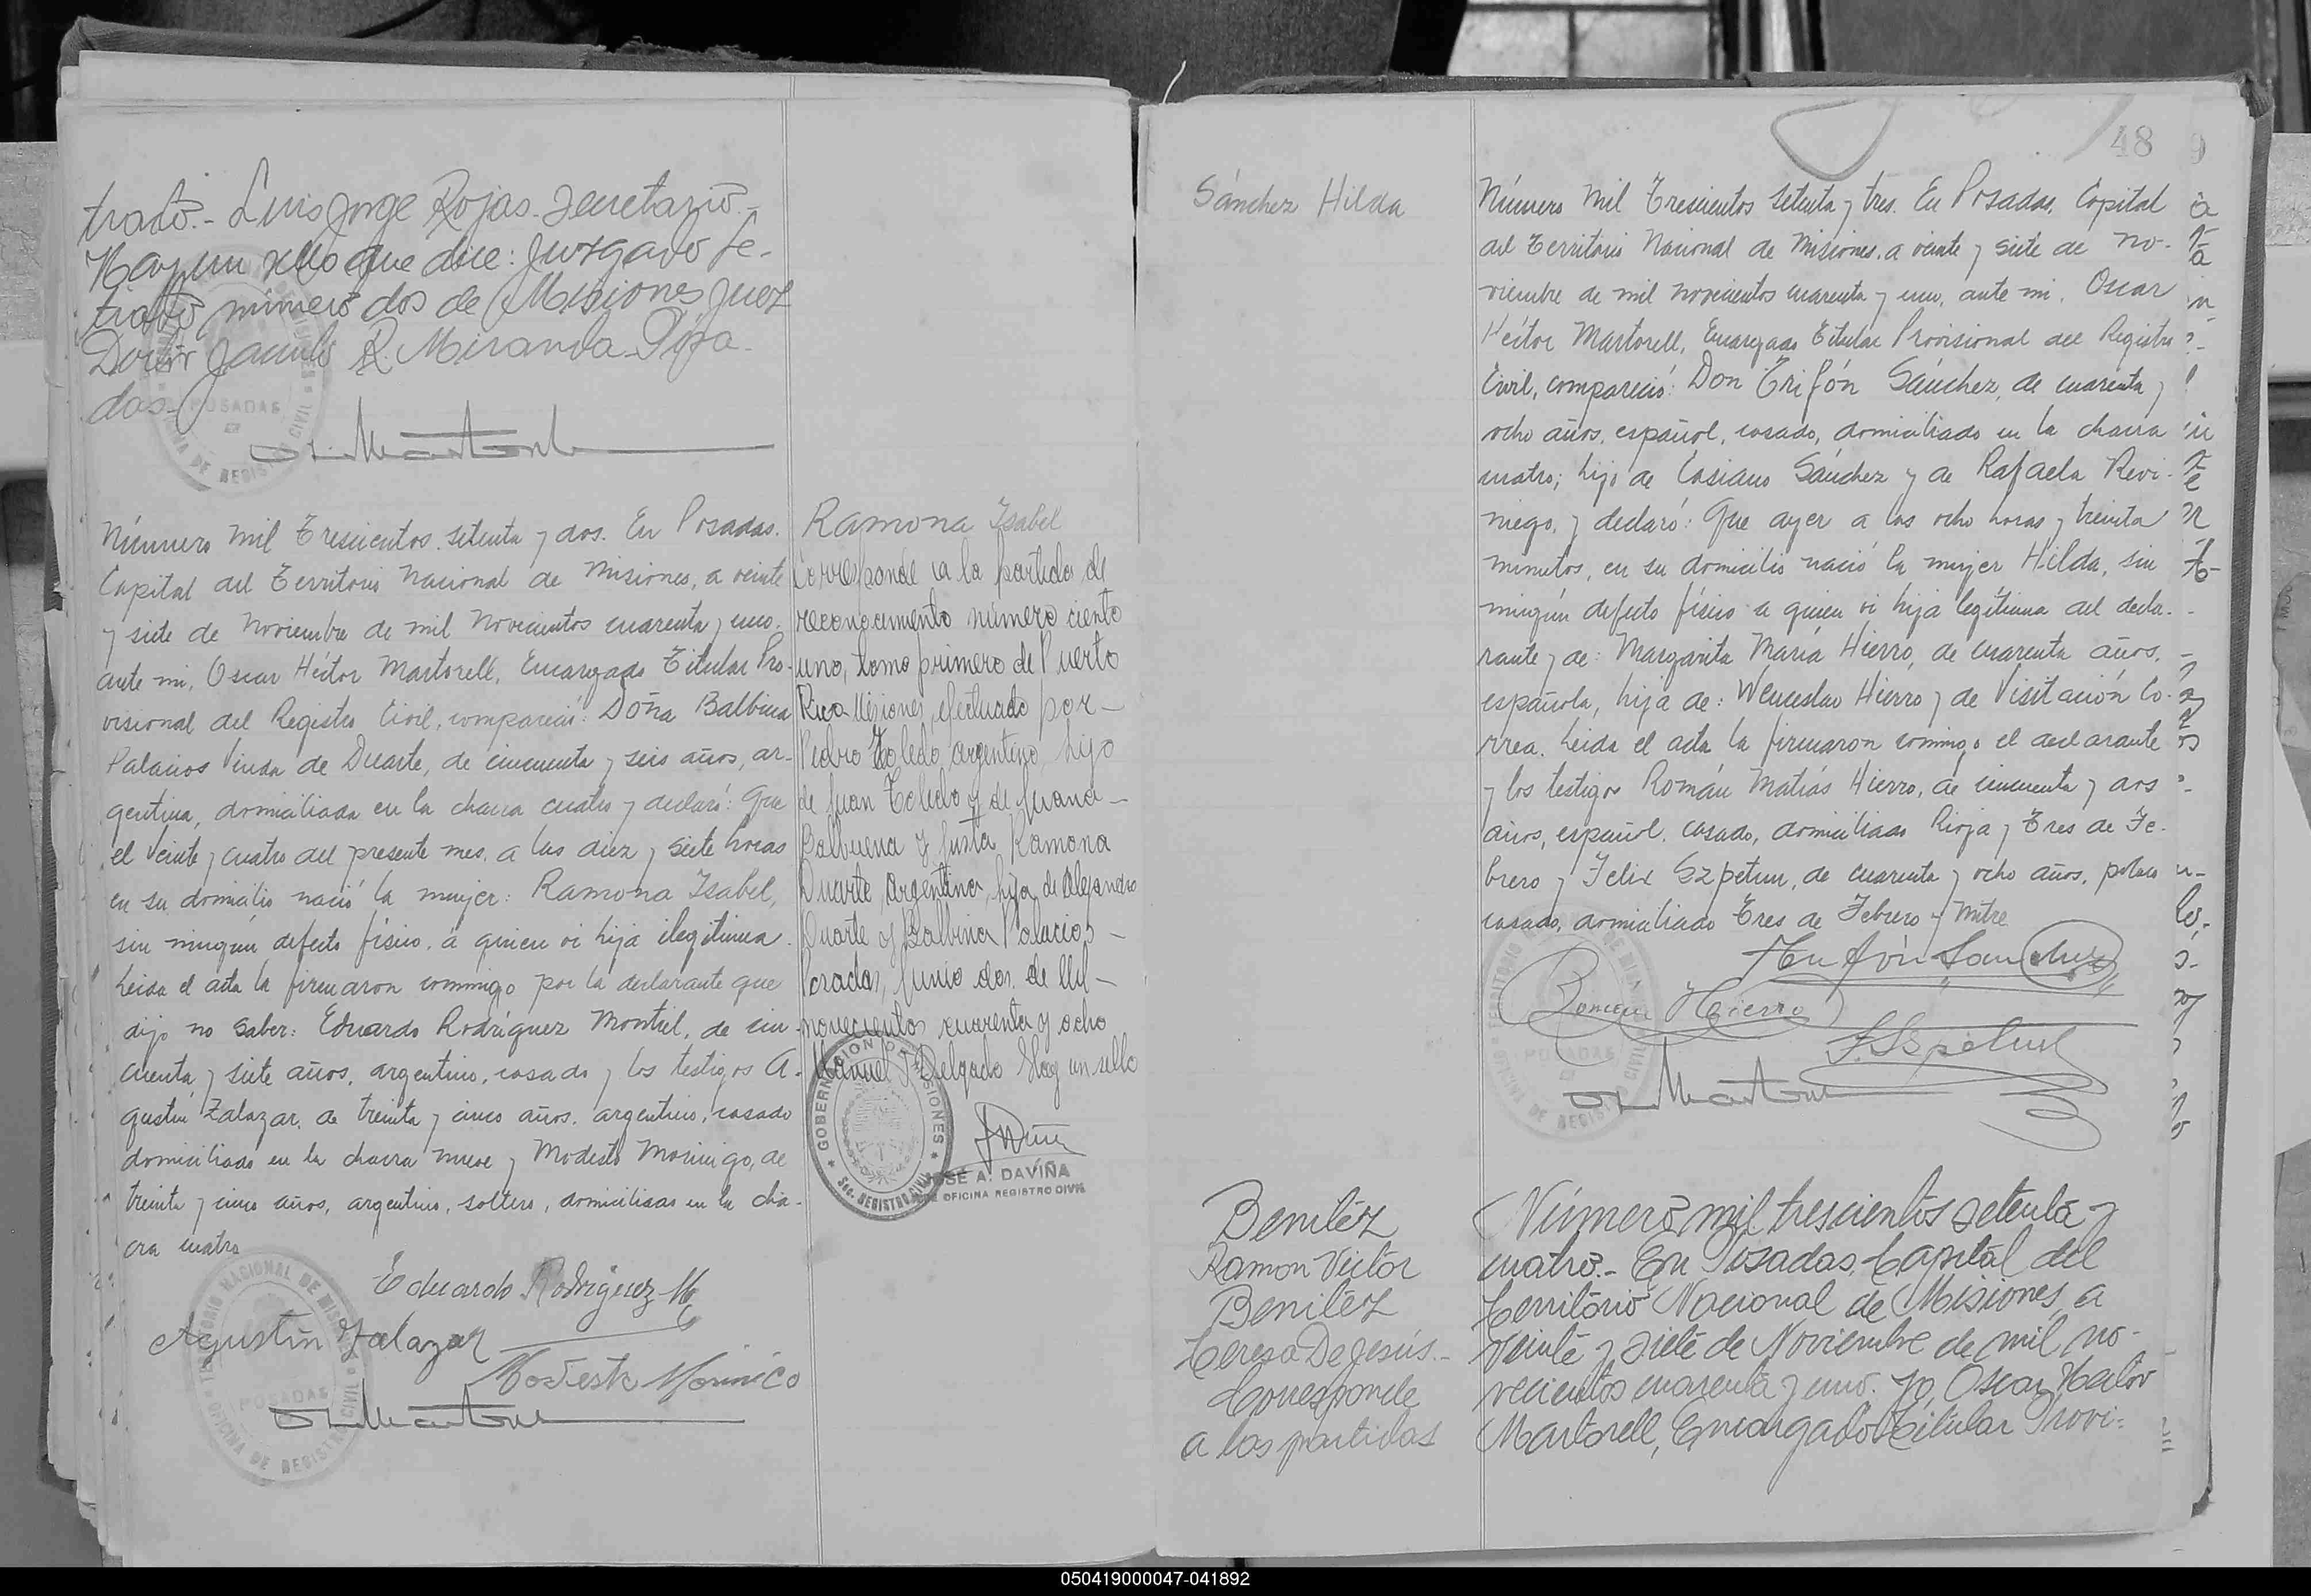 trado.- Luis Jorge Rojas. Secretario.-
Hay un sello que dice: Juzgado Le-
trado número dos de Misiones Juez
Doctor Jacinto R. Miranda. Posa-
das-
Número Mil Trescientos setenta y dos. En Posadas.
Capital del Territorio Nacional de Misiones, a veinte
y siete de Noviembre de mil Novecientos cuarenta y uno.
ante mi, Oscar Héctor Martorell, Encargado Titular Pro-
visional del Registro Civil, compareció: Doña Balbina
Palacios Viuda de Duarte, de cincuenta y seis años, ar-
gentina, domiciliada en la chacra cuatro y declaró: Que
el veinte y cuatro del presente mes, a las diez y siete horas
en su domicilio nació la mujer: Ramona Isabel,
sin ningún defecto físico, a quien vi hija ilegitima.
Leida el acta la firmaron conmigo por la declarante que
dijo no saber: Eduardo Rodríguez Montiel, de cin-
cuenta y siete años, argentino, casado y los testigos A-
gustín Zalazar, de treinta y cinco años, argentino, casado
domiciliado en la chacra nueve y Modesto Morinigo, de
treinta y cinco años, argentino, soltero, domiciliado en la cha-
cra cuatro
Eduardo Rodriguez M
Agustín Zalazar
Modesto Morinico
Ramona Isabel
Corresponde a la partida de
reconocimiento número ciento
uno, tomo primero de Puerto
Rico Misiones, efectuado por-
Pedro Toledo, argentino, hijo
de Juan Toledo y de Juana-
Balbuena y Justa Ramona
Duarte, argentina, hija de Alejandro
Duarte y Balbina Palacios-
Posadas, Junio dos de Mil-
novecientos cuarenta y ocho
Manuel J. Delgado Hay un sello
GOBERNACION DE MISIONES
Sec. REGISTRO CIVIL
JOSÉ A. DAVIÑA
OFICINA REGISTRO CIVIL
TERRITORIO NACIONAL DE MISIONES
POSADAS
OFICINA DE REGISTRO CIVIL
48
Sánchez Hilda
Número Mil Trescientos setenta y tres. En Posadas, Capital
del Territorio Nacional de Misiones, a veinte y siete de no-
viembre de mil novecientos cuarenta y uno, ante mi, Oscar
Héctor Martorell, Encargado Titular Provisional del Registro
Civil, compareció: Don Trifón Sánchez, de cuarenta y
ocho años, español, casado, domiciliado en la chacra
cuatro; hijo de Casiano Sánchez y de Rafaela Revi-
niego, y declaró: Que ayer a las ocho horas y treinta
minutos, en su domicilio nació la mujer Hilda, sin
ningún defecto físico a quien vi hija legítima del decla-
rante y de: Margarita María Hierro, de cuarenta años,
española, hija de: Wenceslao Hierro y de Visitación Co-
rrea. Leida el acta la firmaron conmigo el declarante
y los testigos Román Matías Hierro, de cincuenta y dos
años, español, casado, domiciliado Rioja y Tres de Fe-
brero y Felix Szpetun, de cuarenta y ocho años, polaco
casado, domiciliado Tres de Febrero y Mitre
Trifón Sanchez
Román Hierro
Benitéz
Ramon Victór
Benitéz
Teresa De Jesús.-
Corresponde
a las partidas
Número mil trescientos setenta y
cuatro.- En Posadas, Capital del
Territorio Nacional de Misiones, a
veinte y siete de Noviembre de mil no-
vecientos cuarenta y uno. Yo, Oscar Hector
Martorell, Encargado Titular Provi-
050419000047-041892